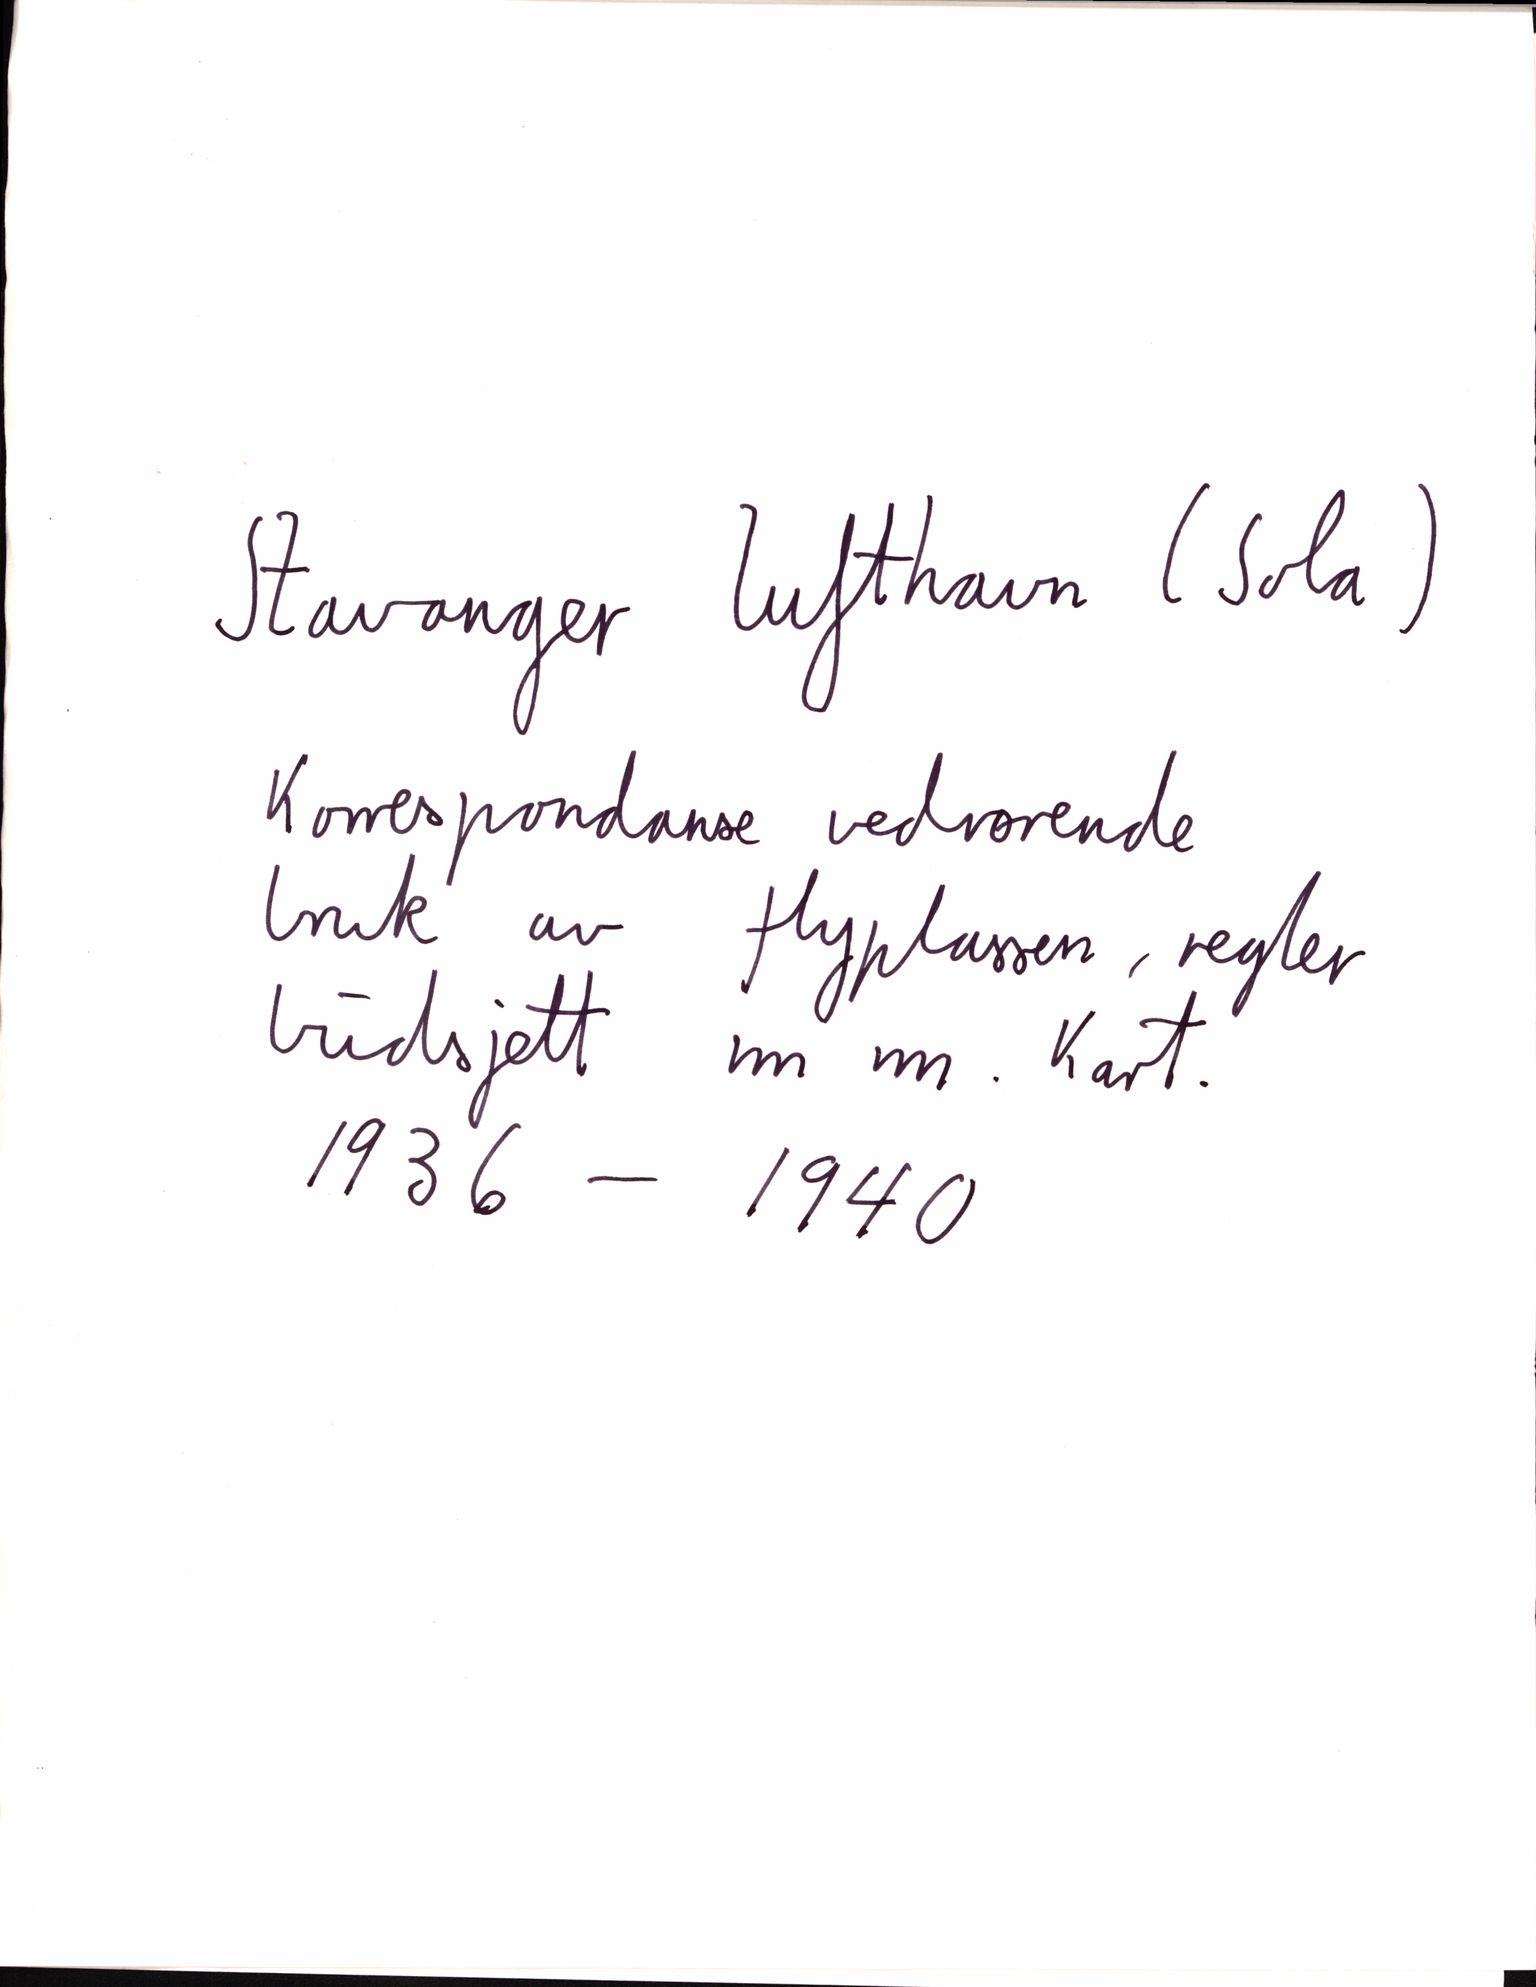 Stavanger lufthavn (Sola)
Korrespondanse vedrørende
bruk av flyplassen, regler
budsjett m m. Kart.
1936 - 1940